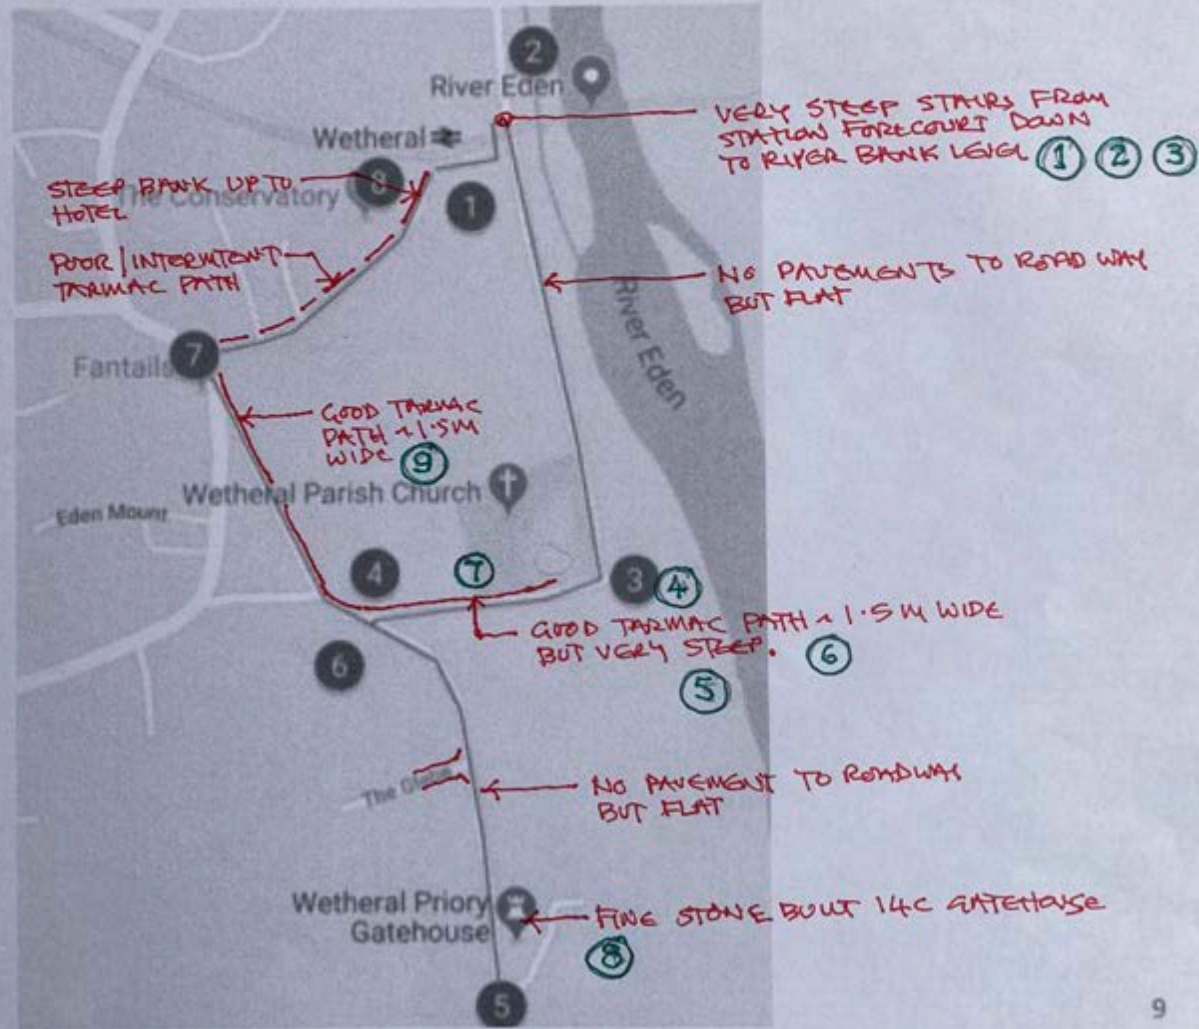 2
River Eden
VERY STEEP STAIRS FROM
STATION FORECOURT DOWN
TO RIVER BANK LEVEL ① ② ③
Wetheral
8
The Conservatory
STEEP BANK UP TO
HOTEL
1
POOR/INTERMTENT
TARMAC PATH
NO PAVEMENTS TO ROADWAY
BUT FLAT
River Eden
7
Fantails
GOOD TARMAC
PATH ~1.5M
WIDE ⑨
Wetheral Parish Church
Eden Mount
4
⑦
3 ④
GOOD TARMAC PATH ~ 1.5M WIDE
BUT VERY STEEP. ⑥
⑤
6
The Glebe
NO PAVEMENT TO ROADWAY
BUT FLAT
Wetheral Priory
Gatehouse
FINE STONE BUILT 14C GATEHOUSE
⑧
5
9